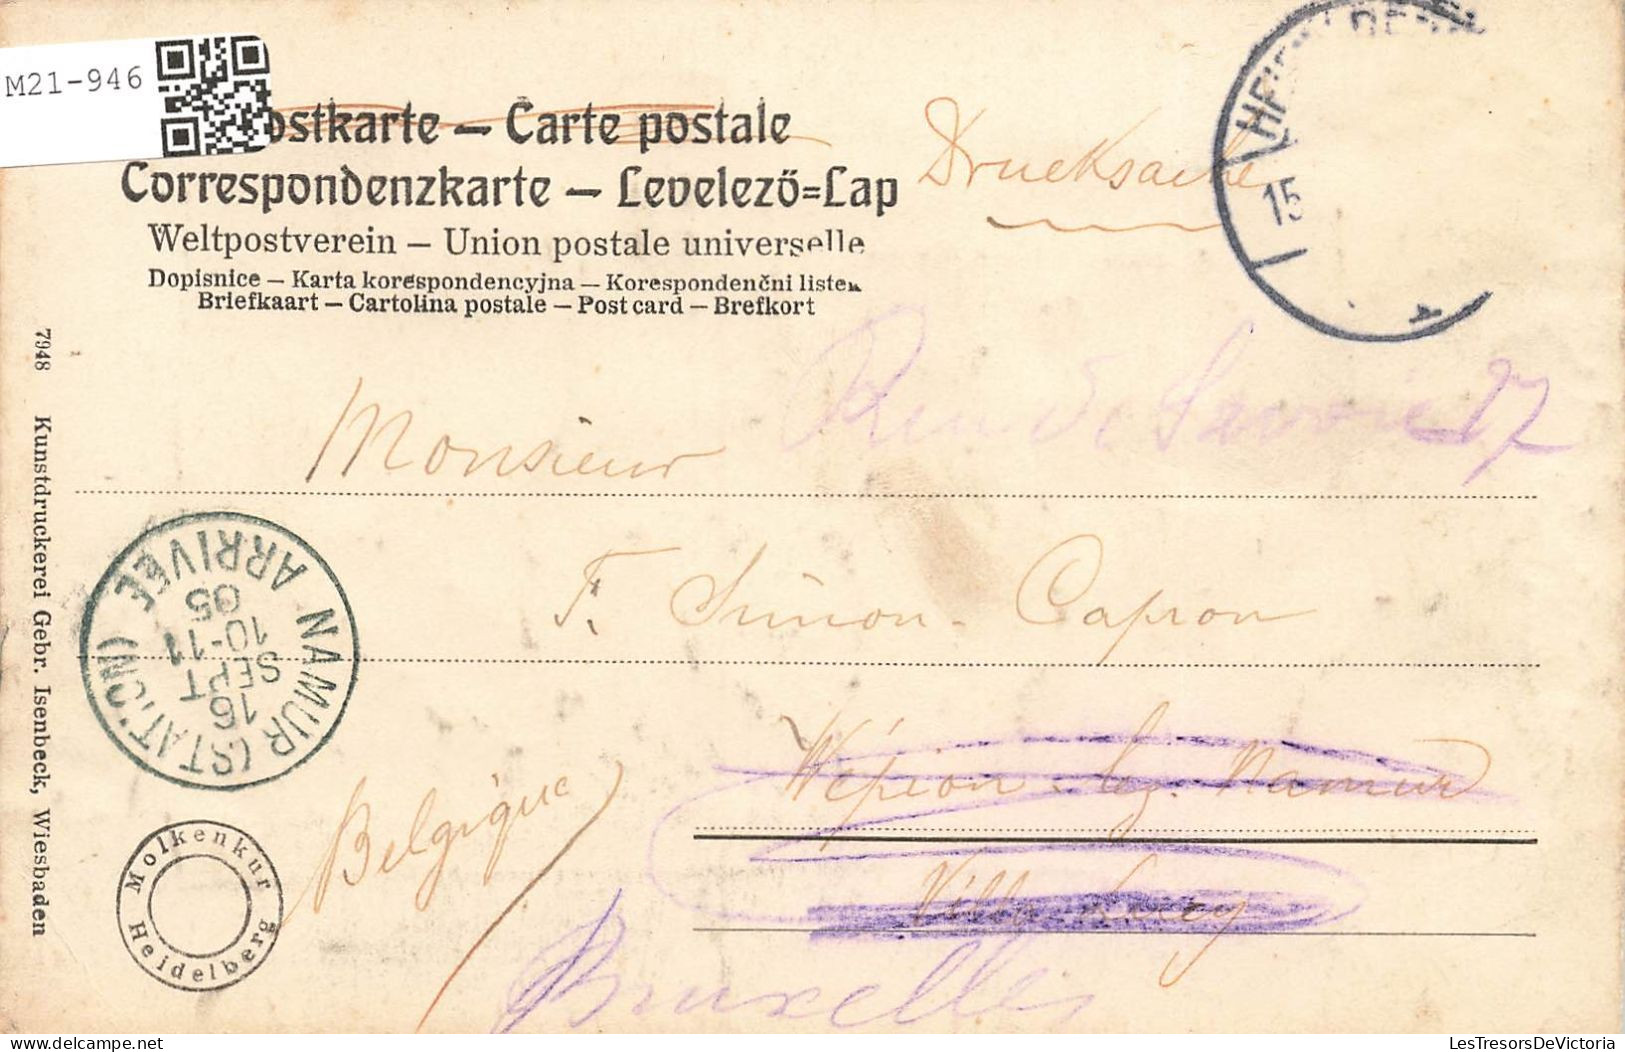 M21-946
ostkarte — Carte postale
Correspondenzkarte — Levelező=Lap
Weltpostverein — Union postale universelle
Dopisnice — Karta korespondencyjna — Korespondenčni listek
Briefkaart — Cartolina postale — Post card — Brefkort
Drucksache
15
Monsieur
27
F. Simon-Capron
Wépion-lez-Namur
Villa Lucy
Belgique
Bruxelles
NAMUR (STATION)
ARRIVÉE
16
SEPT
10-11
05
Molkenkur
Heidelberg
7948 Kunstdruckerei Gebr. Isenbeck, Wiesbaden
LesTresorsDeVictoria